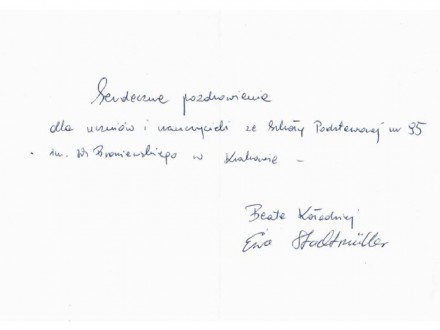 Serdeczne pozdrowienia
dla uczniów i nauczycieli ze Szkoły Podstawowej nr 95
im. Wł Broniewskiego w Krakowie –
Beata Kołodziej
Ewa Stadtmüller